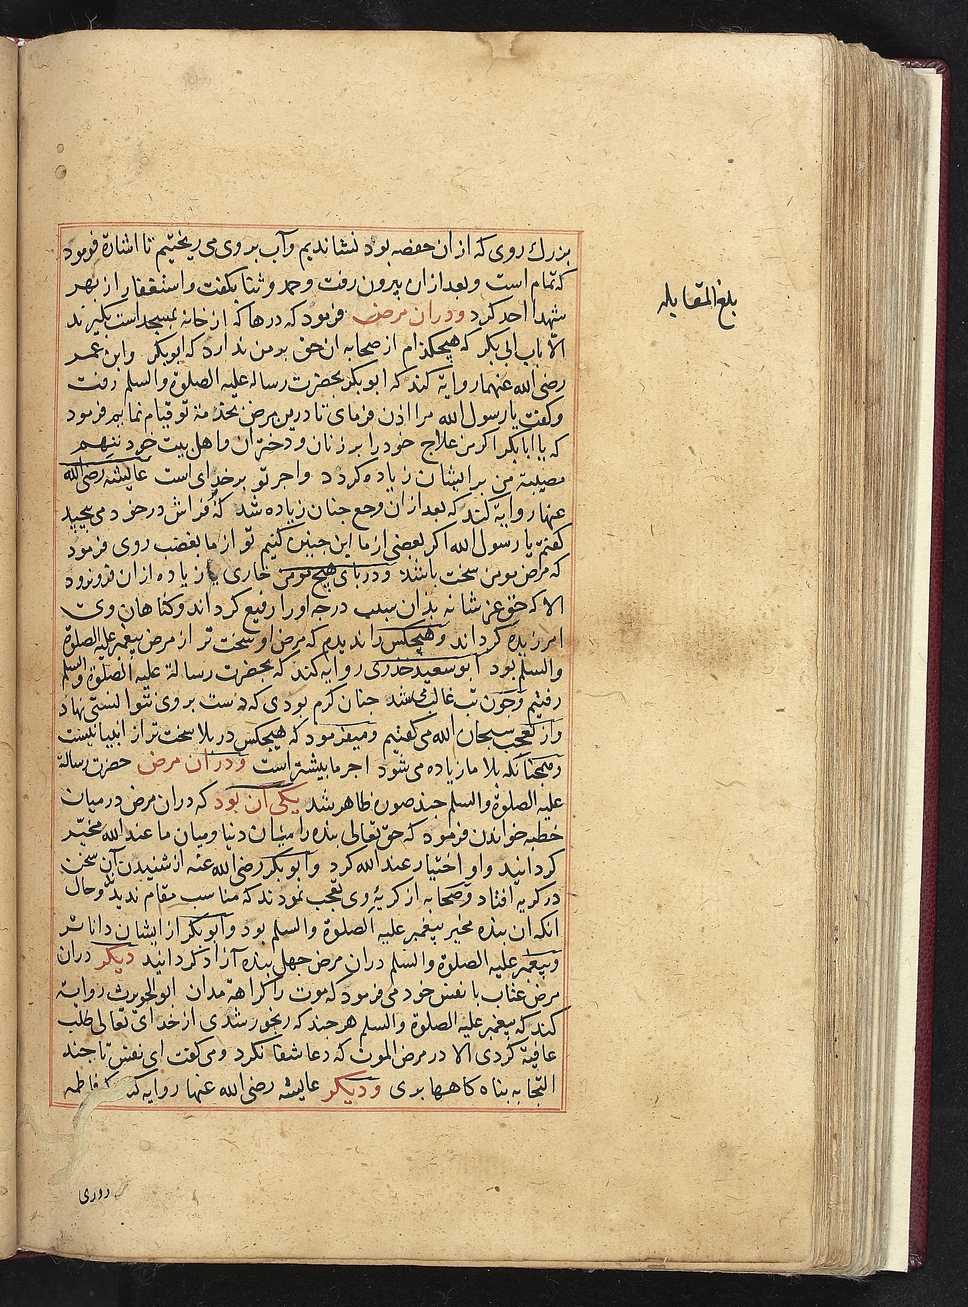 بزرك روی که ازان حفصه بود نشاندیم وآب بروی می ریختیم تا اشارة فرمود
که تمام است وبعدازان بیرون رفت وحمد وثنا بکفت واستغفار از بهر
شهدا احد کرد ودران مرض فرمود که درها که از خانه بمسجد است بکیرند
الا باب ابی بکر که هیچکدام از صحابه ان حق بر من ندارد که ابوبکر وابن عمر
رضی الله عنهما روایة کند که ابوبکر بحضرت رسالة علیه الصلوة والسلم رفت
وکفت یا رسول الله مرا اذن فرمای تا درین مرض بخدمة تو قیام نمایم فرمود
که یا ابابکر اکر من علاج خود را بر زنان ودختران واهل بیت خود ننهم
مصیبة من برایشان زیاده کردد واجر تو برخدای است عایشه رضی الله
عنها روایة کند که بعدازان وجع چنان زیاده شد که فراش درخود می پیچید
کفتم یا رسول الله اکر بعضی از ما این چنین کنیم تو از ما بغضب روی فرمود
که مرض مومن سخت باشد ودر پای هیچ مومن خاری یا زیاده ازان فرو نرود
الا که حق عز شانه بدان سبب درجه اورا رفیع کرداند وکناهان وی
امرزیده کرداند وهیچکس را ندیدم که مرض او سخت تر از مرض پیغمبر علیه الصلوة
والسلم بود ابوسعید خدری روایة کند که بحضرت رسالة علیه الصلوة والسلم
رفتیم وچون تب غالب شد چنان کرم بودی که دست بر وی نتوانستی نهاد
واز تعجب سبحان الله می کفتیم ومیفرمود که هیچکس در بلا سخت تر از انبیا نیست
وهمچنانکه بلا ما زیاده می شود اجر ما بیشتر است ودران مرض حضرت رسالة
علیه الصلوة والسلم چند صورة ظاهر شد یکی آن بود که دران مرض درمیان
خطبه خواندن فرمود که حق تعالی بنده را میان دنیا ومیان ما عند الله مخیر
کردانید واو اختیار عند الله کرد وابوبکر رضی الله عنه از شنیدن آن سخن
در کریه افتاد وصحابه از کریۀ وی تعجب نمودند که مناسب مقام ندیدند وحال
انکه ان بنده مخیر پیغمبر علیه الصلوة والسلم بود وابوبکر از ایشان داناتر
وپیغمبر علیه الصلوة والسلم دران مرض چهل بنده آزاد کردانید دیکر دران
مرض عتاب با نفس خود می فرمود که موت را کراهة مدان ابوالحویرث روایة
کند که پیغمبر علیه الصلوة والسلم هرچند که رنجور شدی از خدای تعالی طلب
عافیة کردی الا در مرض الموت که دعا شفا نکرد ومی کفت ای نفس تا چند
التجا به پناه کاهها بری ودیکر عایشه رضی الله عنها روایه کند که فاطمه
بلغ المقابله
روزی